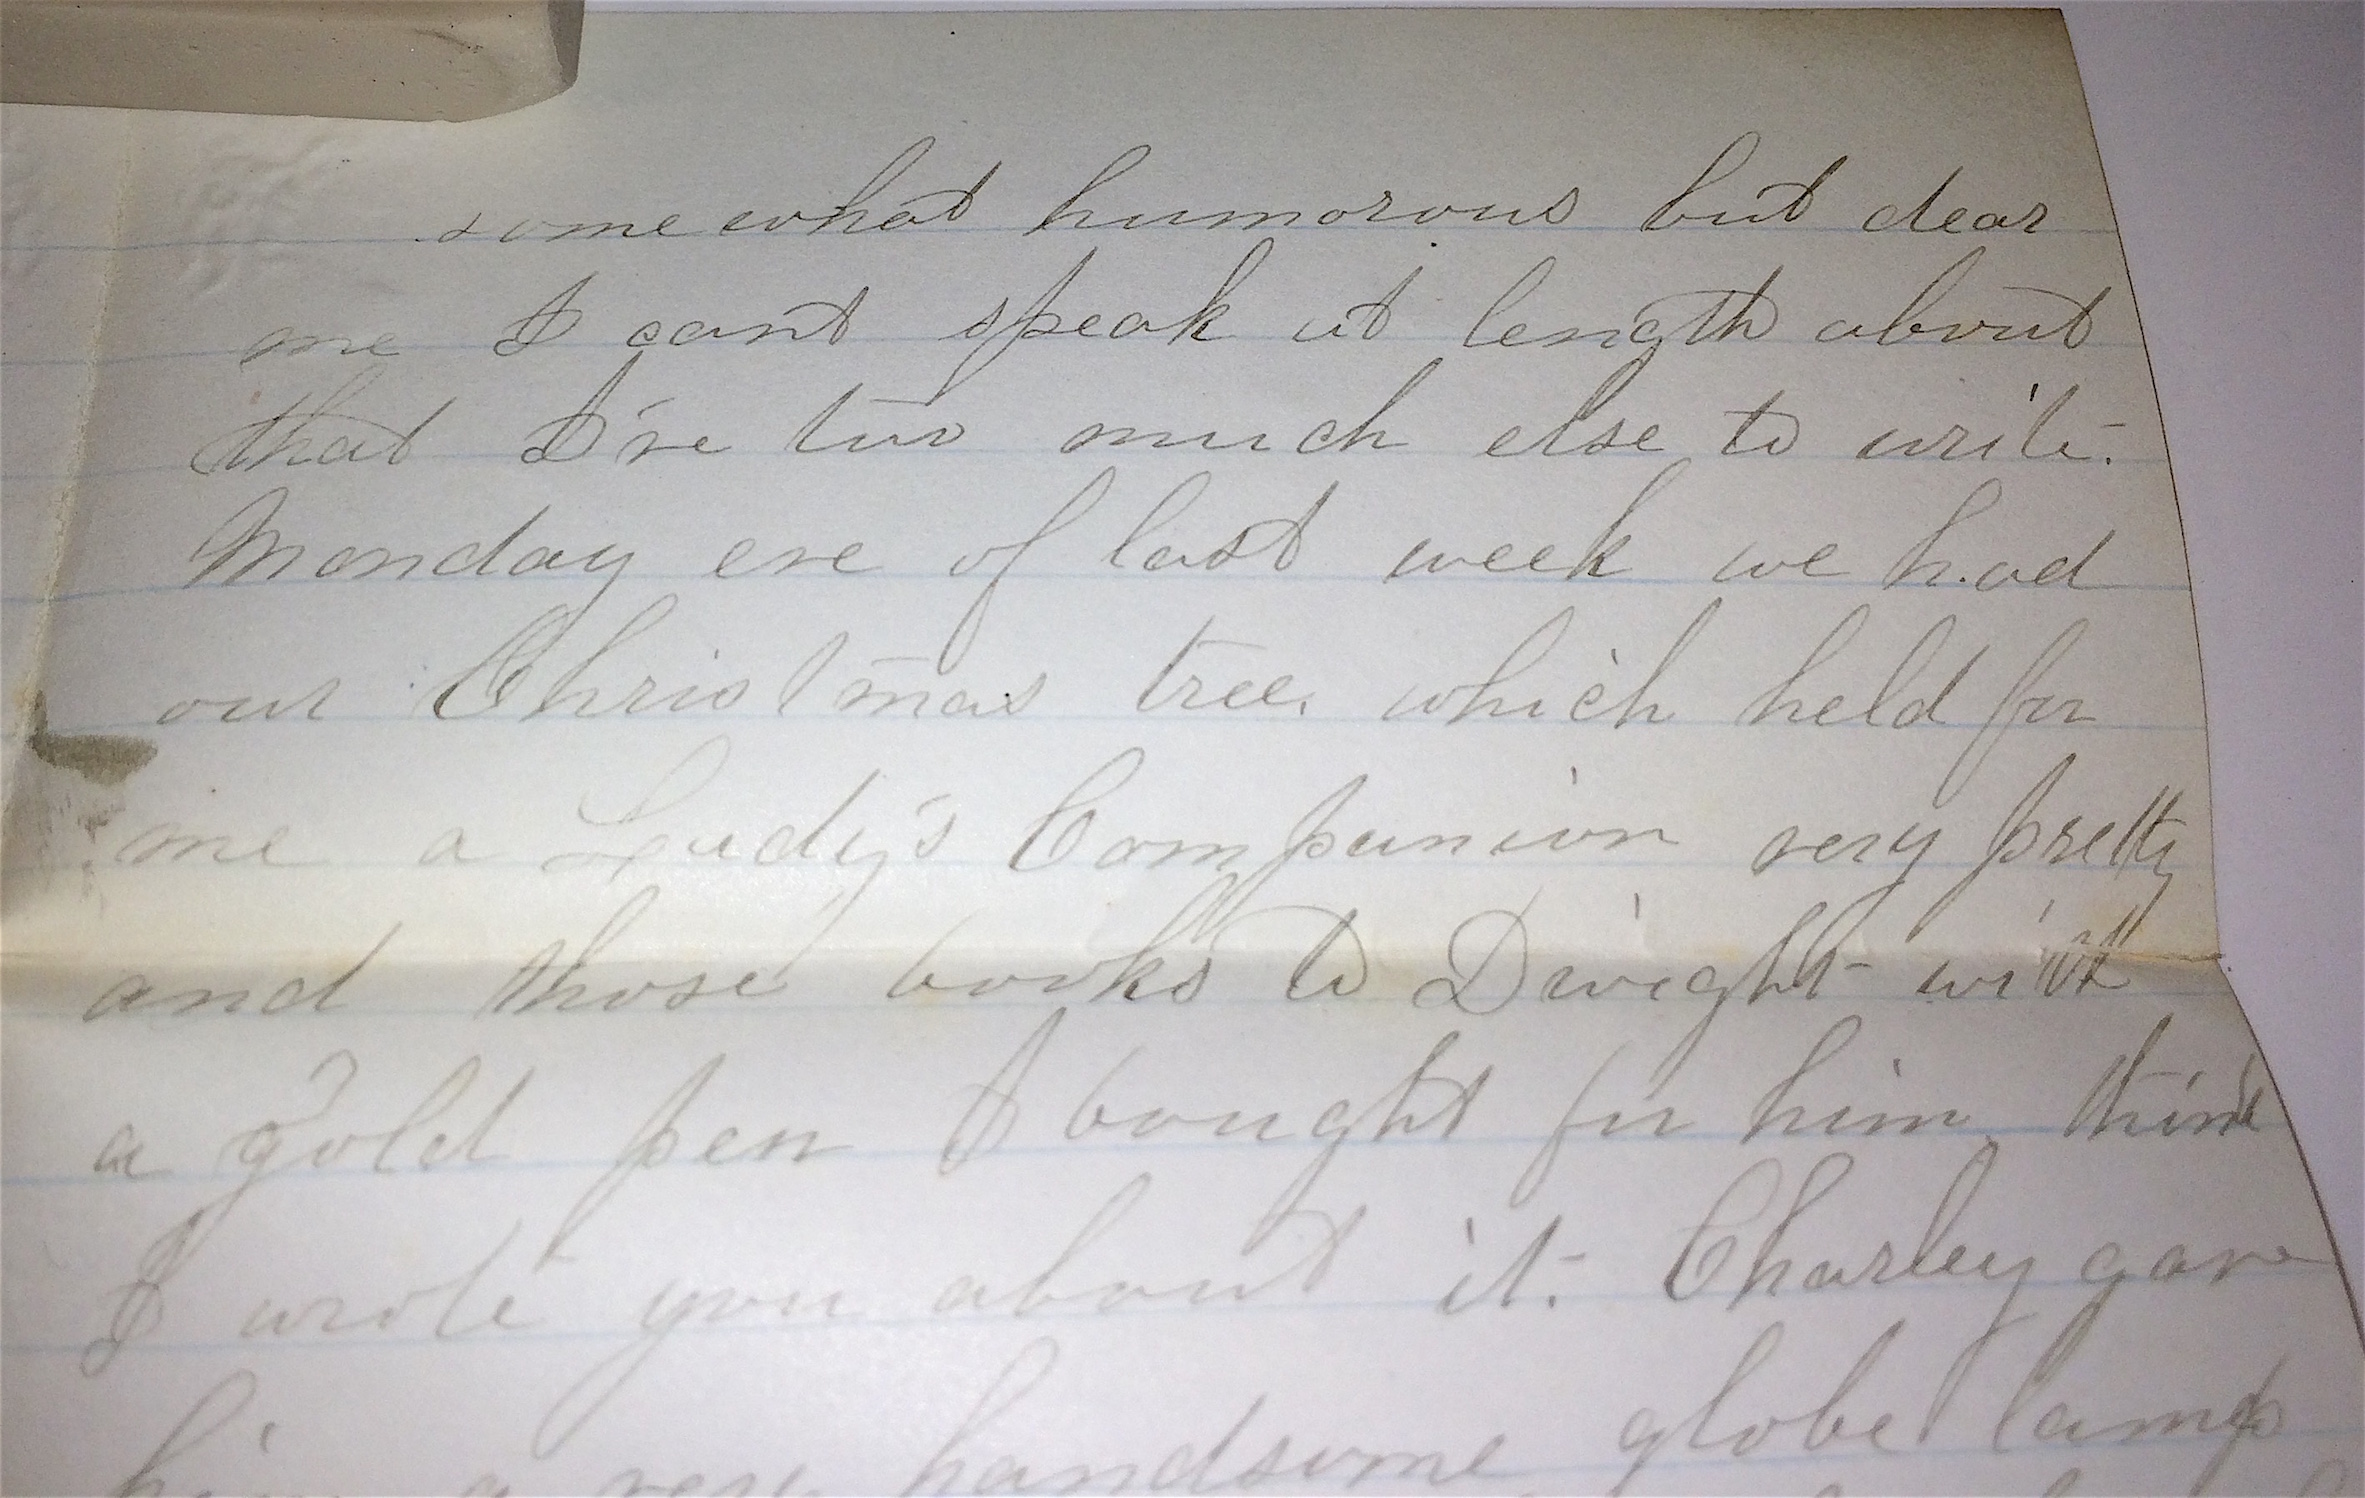 somewhat humorous but dear
me I cant speak at length about
that I've too much else to write.
Monday eve of last week we had
our Christmas tree. which held for
me a Lady's Companion very pretty
and those books to Dwight with
a gold pen I bought for him, think
I wrote you about it. Charley gave
him a very handsome globe lamp